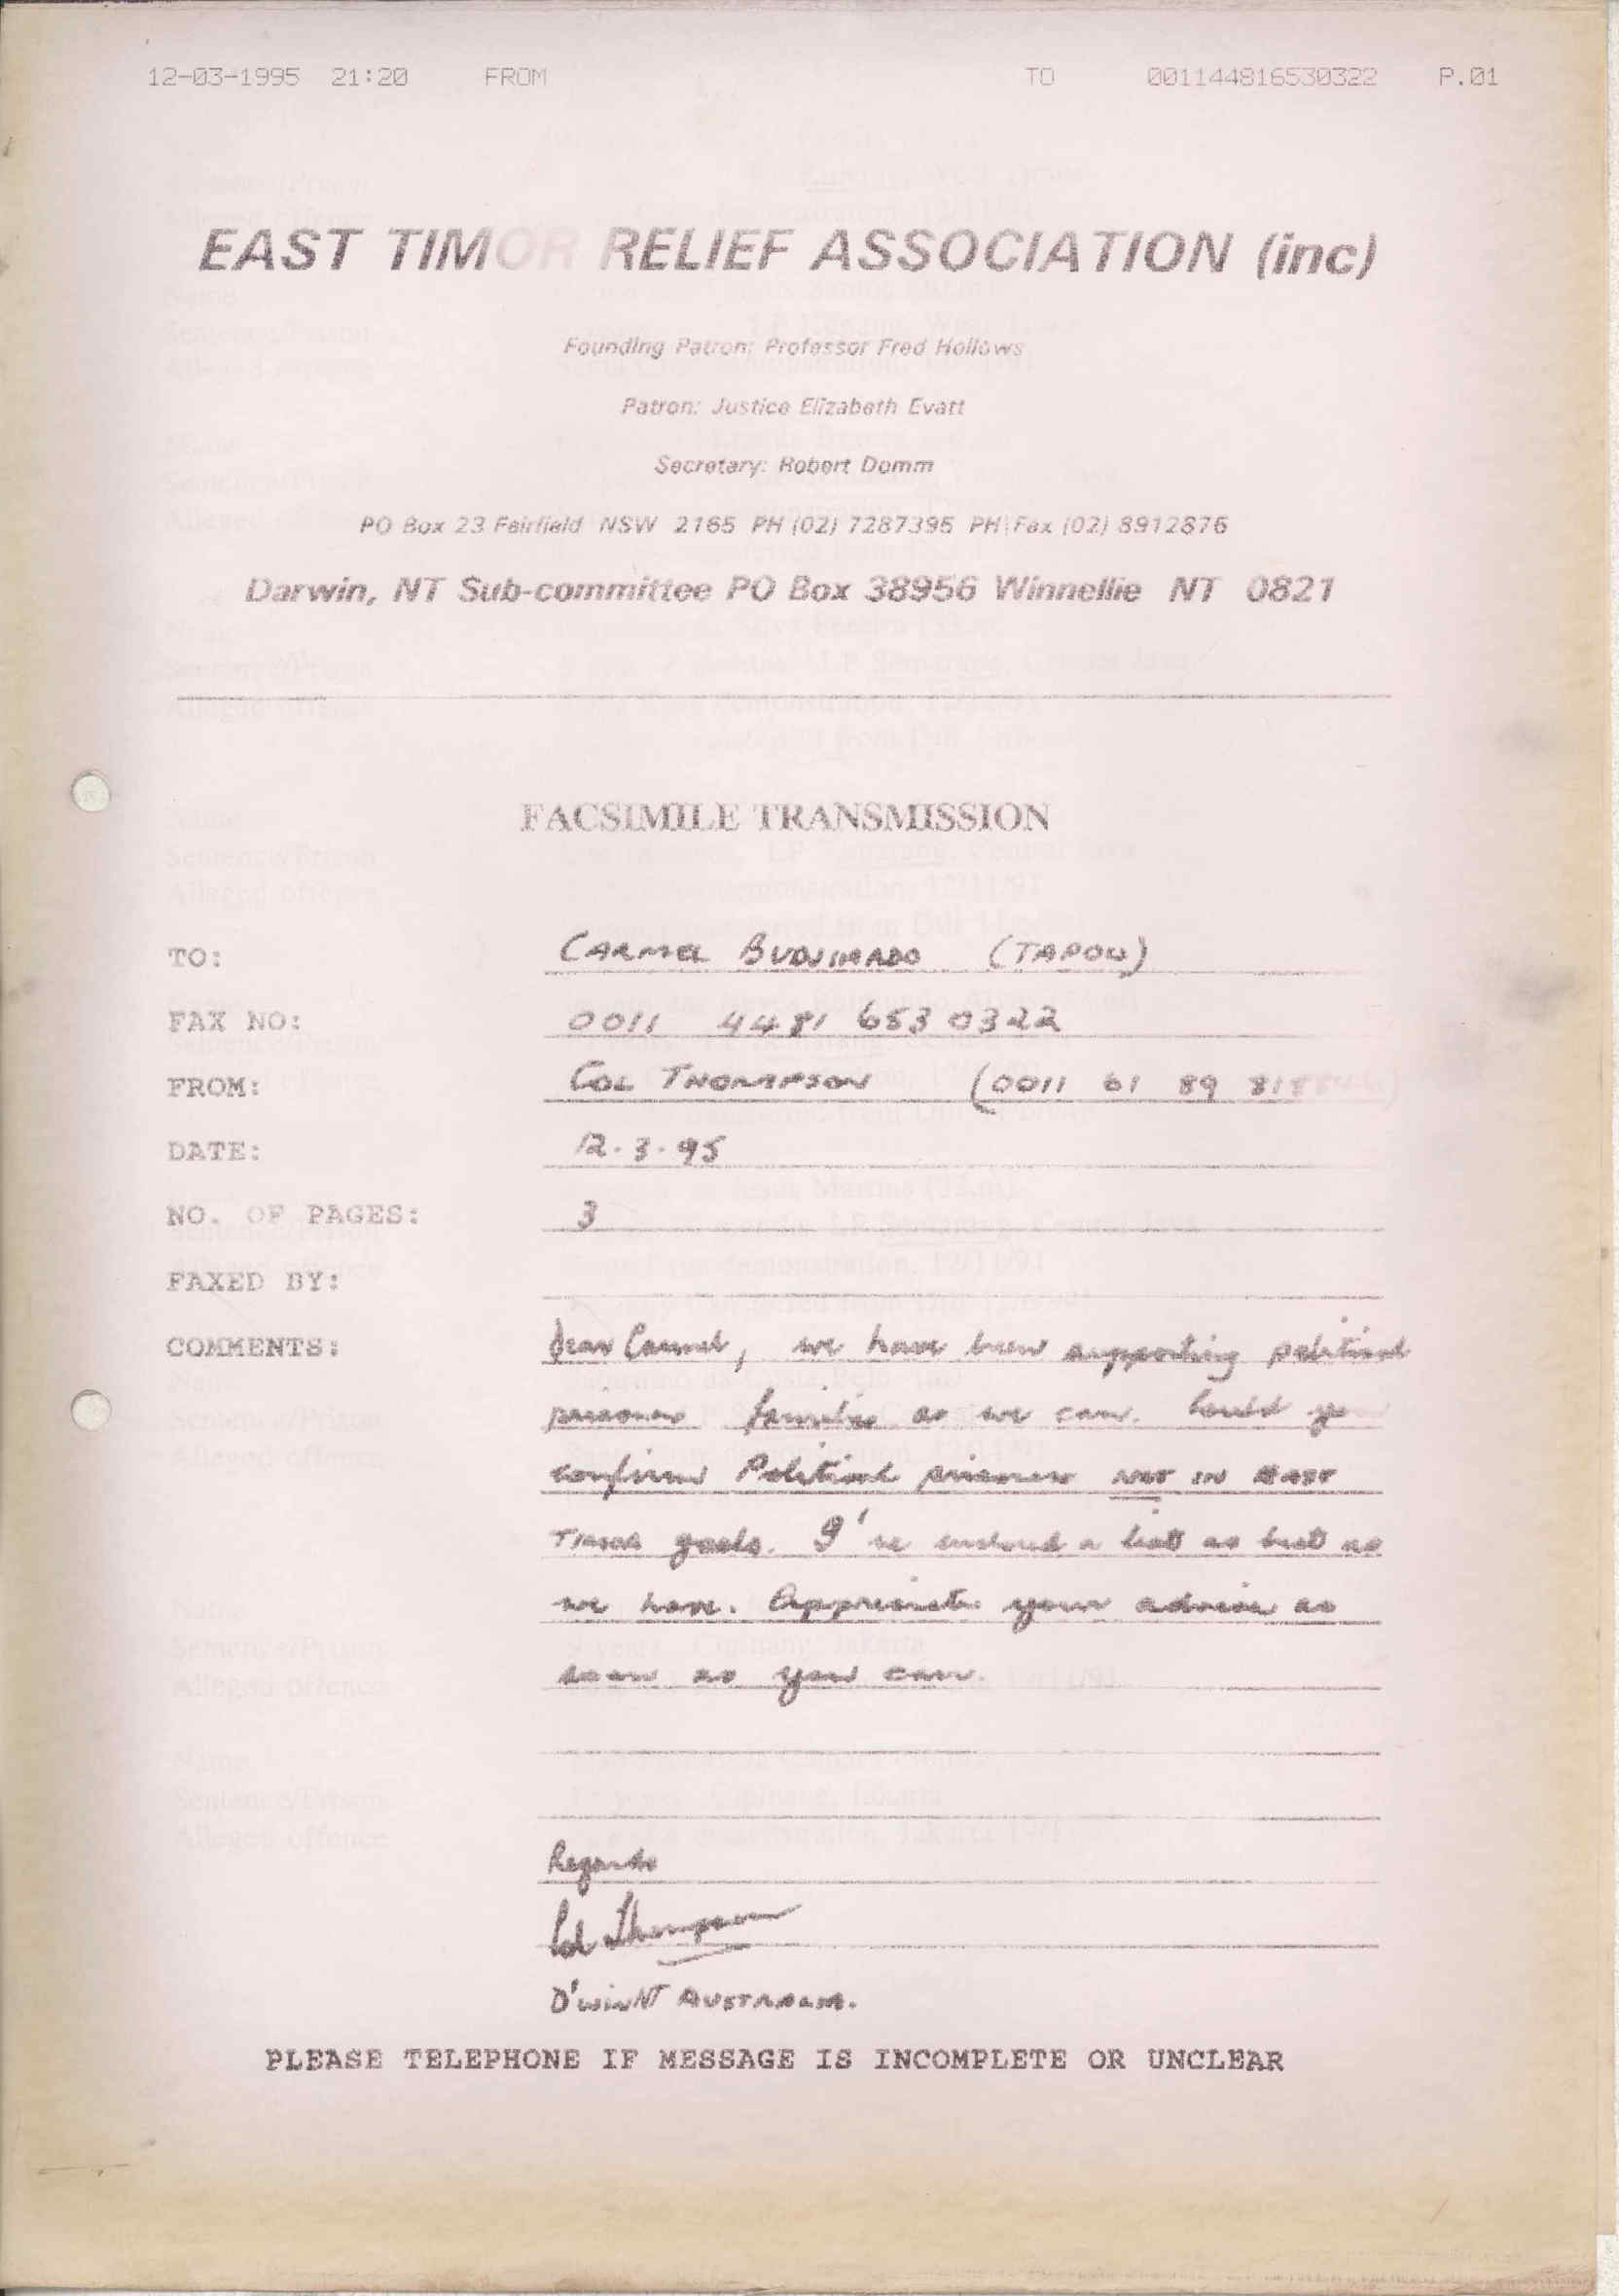 12-03-1995 21:20 FROM TO 001144816530322 P.01
EAST TIMOR RELIEF ASSOCIATION (inc)
Founding Patron: Professor Fred Hollows
Patron: Justice Elizabeth Evatt
Secretary: Robert Domm
PO Box 23 Fairfield NSW 2165 PH (02) 7287395 PH\Fax (02) 8912876
Darwin, NT Sub-committee PO Box 38956 Winnellie NT 0821
FACSIMILE TRANSMISSION
TO: CARMEL BUDJIARDO (TAPOL)
FAX NO: 0011 4481 653 0322
FROM: COL THOMPSON (0011 61 89
DATE: 12.3.95
NO. OF PAGES: 3
FAXED BY:
COMMENTS: Dear Carmel, we have been supporting political
prisoner families as we can. Could you
confirm Political prisoners NOT IN EAST
TIMOR gaols. I've enclosed a list as best as
we have. Appreciate your advice as
soon as you can.
Regards
Col Thompson
D'WIN NT AUSTRALIA.
PLEASE TELEPHONE IF MESSAGE IS INCOMPLETE OR UNCLEAR